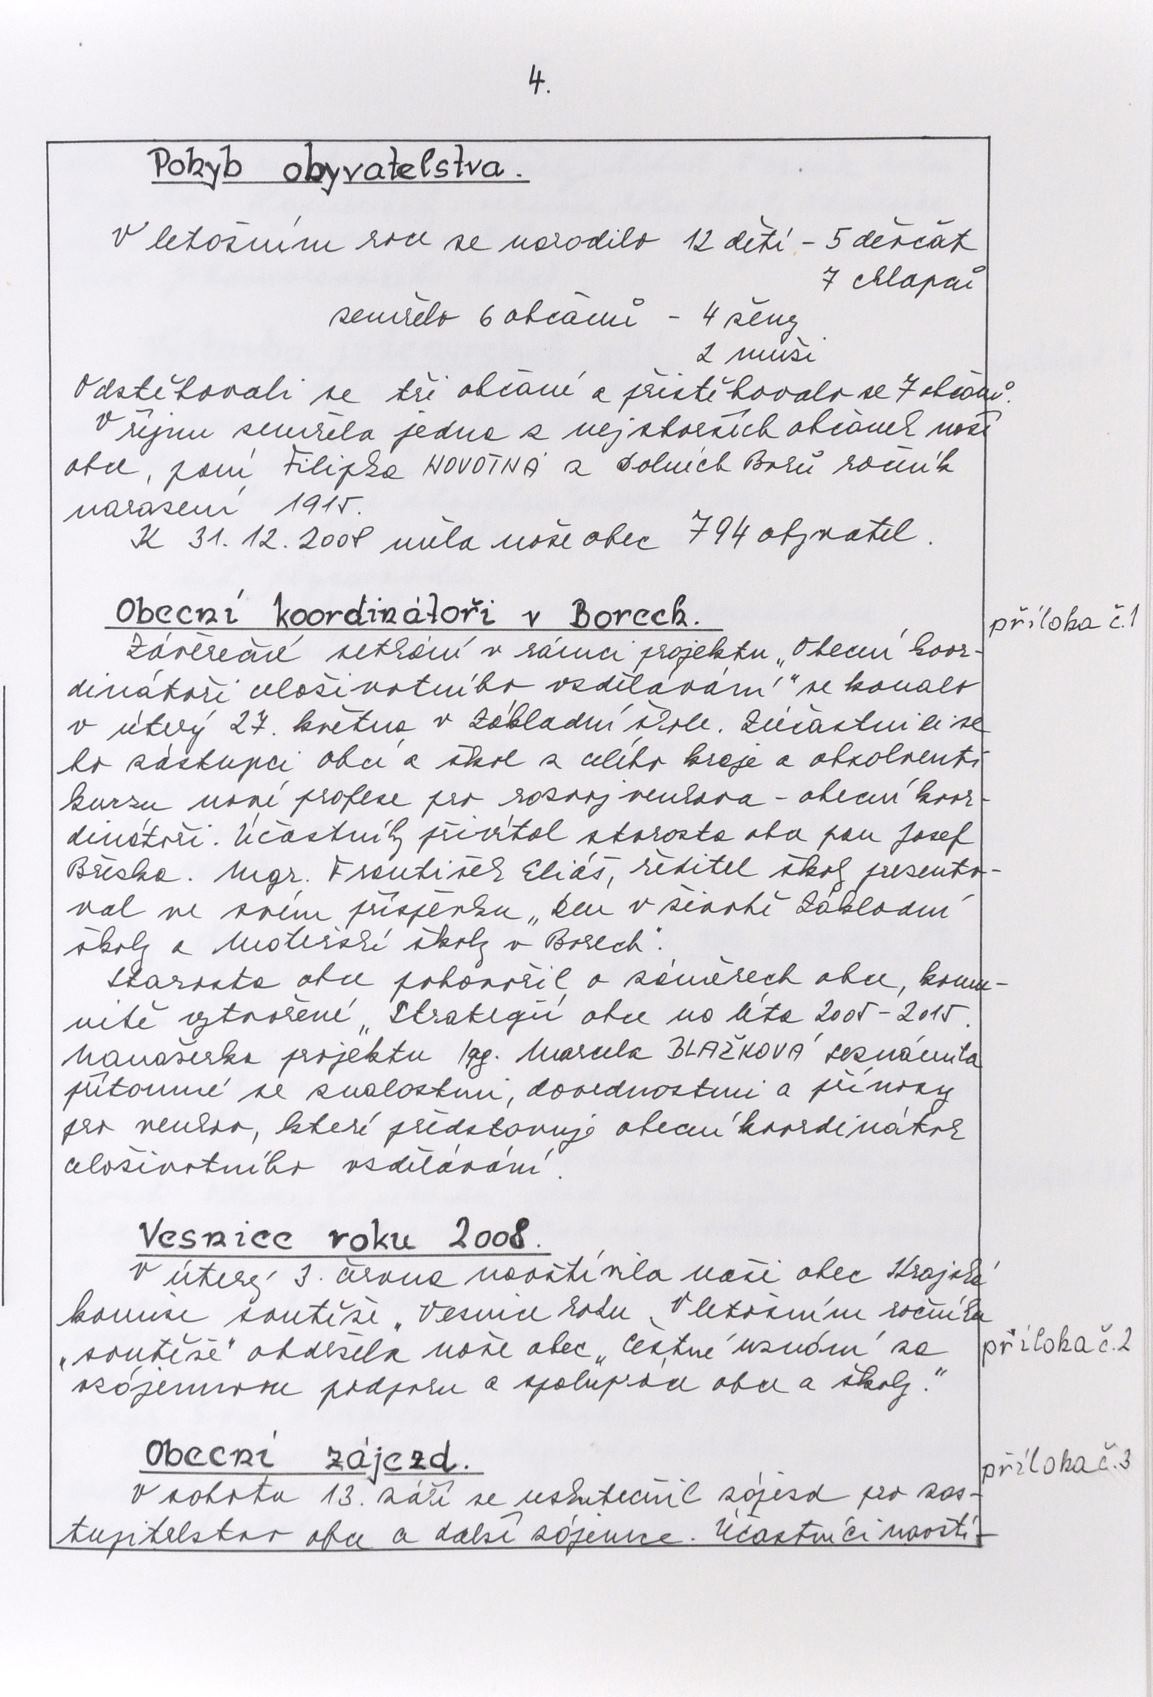 4.
Pohyb obyvatelstva.
V letošním roce se narodilo 12 dětí - 5 děvčat
7 chlapců
zemřelo 6 občanů - 4 ženy
2 muži
Odstěhovali se tři občané a přistěhovalo se 7 občanů.
V říjnu zemřela jedna z nejstarších občanek naší
obce, paní Filipka NOVOTNÁ z Dolních Borů ročník
narození 1915.
K 31.12.2008 měla naše obec 794 obyvatel.
Obecní koordinátoři v Borech.
příloha č.1
Závěrečné setkání v rámci projektu „Obecní koor-
dinátoři celoživotního vzdělávání" se konalo
v úterý 27. května v Základní škole. Zúčastnili se
ho zástupci obcí a škol z celého kraje a absolventi
kurzu nové profese pro rozvoj venkova - obecní koor-
dinátoři. Účastníky přivítal starosta obce pan Josef
Březka. Mgr. František Eliáš, ředitel školy presento-
val ve svém příspěvku „Den v životě Základní
školy a Mateřské školy v Borech".
Starosta obce pohovořil o záměrech obce, komu-
nitě vytvořené „Strategii obce na léta 2005-2015.
Manažerka projektu Ing. Marcela BLAŽKOVÁ seznámila
přítomné se znalostmi, dovednostmi a přínosy
pro venkov, které představuje obecní koordinátor
celoživotního vzdělávání.
Vesnice roku 2008.
V úterý 3. června navštívila naši obec Krajská
komise soutěže „Vesnice roku". V letošním ročníku
„soutěže" obdržela naše obec „Čestné uznání za
příloha č.2
vzájemnou podporu a spolupráci obce a školy."
Obecní zájezd.
příloha č.3
V sobotu 13. září se uskutečnil zájezd pro zas-
tupitelstvo obce a další zájemce. Účastníci navští-